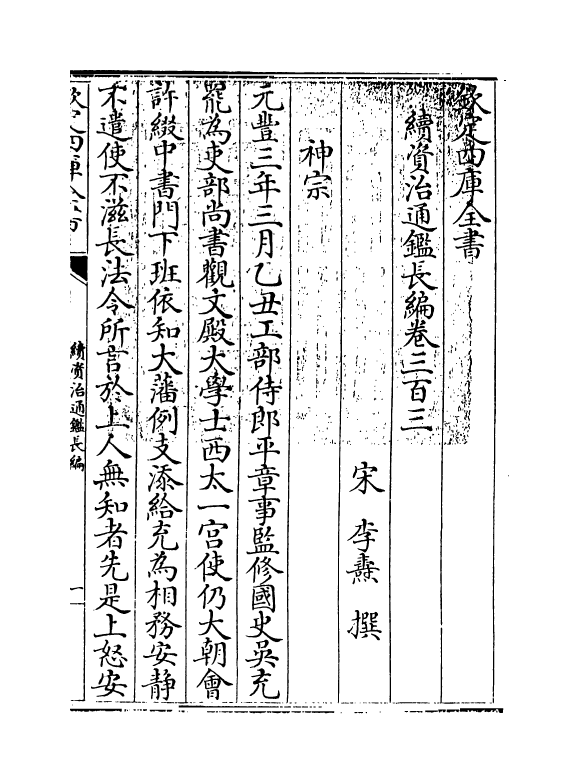 欽定四庫全書
續資治通鑑長編卷三百三
宋 李燾 撰
神宗
元豐三年三月乙丑工部侍郎平章事監修國史吳充
罷為吏部尚書觀文殿大學士西太一宮使仍大朝會
許綴中書門下班依知大藩例支添給充為相務安静
不遣使不滋長法令所言於上人無知者先是上怒安
欽定四庫全書
續資治通鑑長編
一